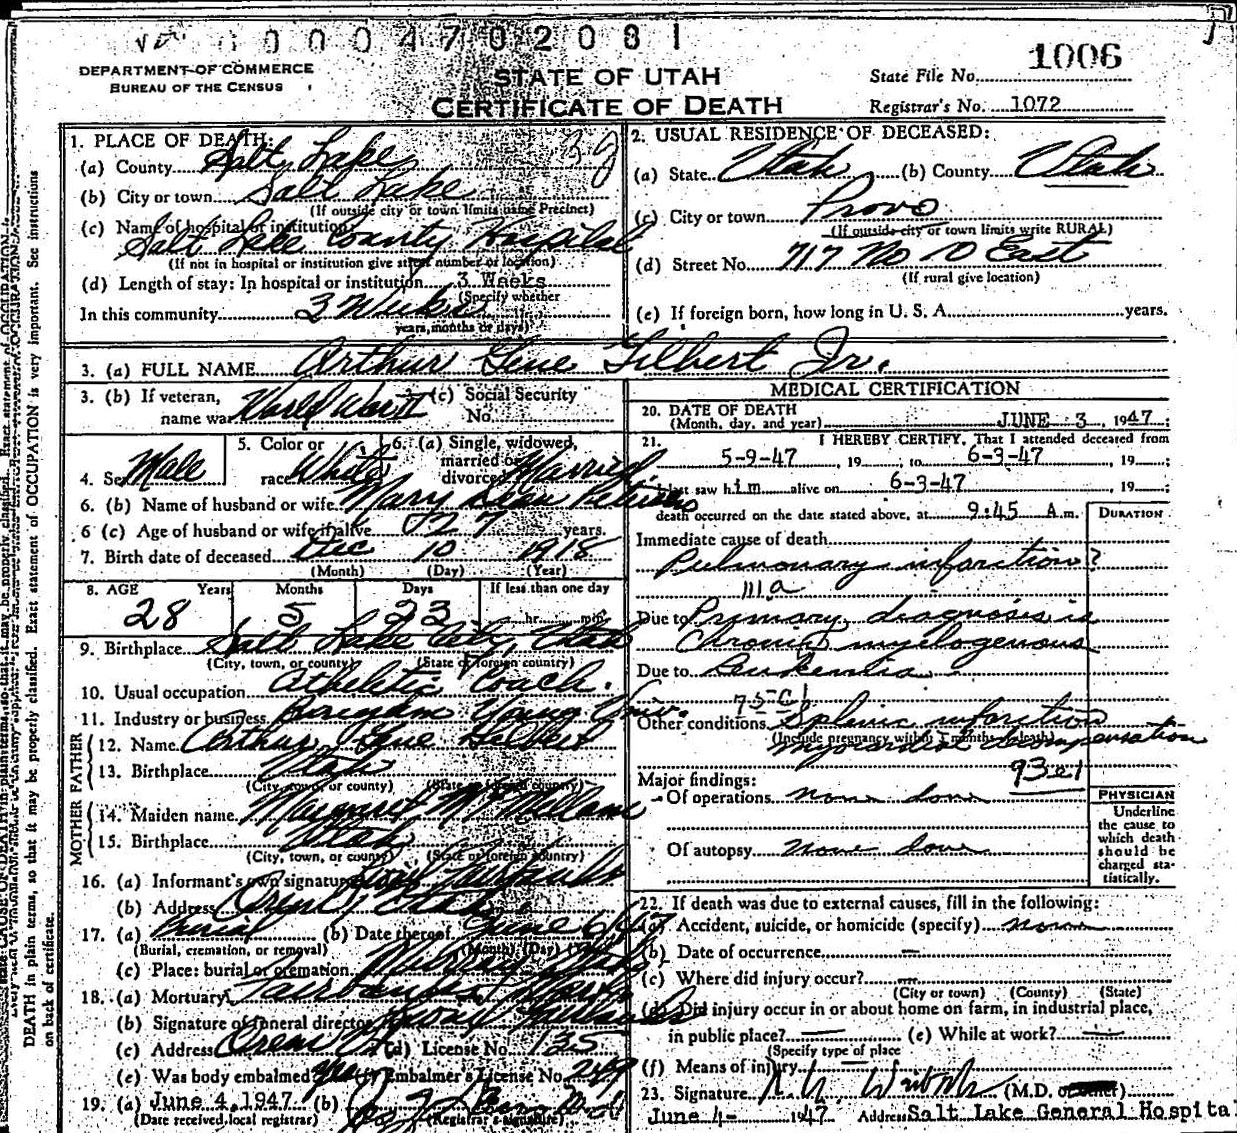 0 0 0 4 7 0 2 0 8 1
1006
DEPARTMENT OF COMMERCE
BUREAU OF THE CENSUS
STATE OF UTAH
CERTIFICATE OF DEATH
State File No.
Registrar's No. 1072
1. PLACE OF DEATH:
(a) County Salt Lake
(b) City or town Salt Lake
(If outside city or town limits name Precinct)
(c) Name of hospital or institution:
Salt Lake County Hospital
(If not in hospital or institution give street number or location)
(d) Length of stay: In hospital or institution 3 Weeks
(Specify whether
In this community 3 Weeks
years, months or days)
2. USUAL RESIDENCE OF DECEASED:
(a) State Utah (b) County Utah
(c) City or town Provo
(If outside city or town limits write RURAL)
(d) Street No. 717 No East
(If rural give location)
(e) If foreign born, how long in U. S. A. years.
3. (a) FULL NAME Arthur Gene Gilbert Jr.
3. (b) If veteran, name war World War II
3. (c) Social Security No.
4. Sex Male
5. Color or race White
6. (a) Single, widowed, married or divorced Married
6. (b) Name of husband or wife Mary Dean
6 (c) Age of husband or wife if alive 27 years.
7. Birth date of deceased Dec 10 1918
(Month) (Day) (Year)
8. AGE Years Months Days If less than one day
28 5 23 hr. min.
9. Birthplace Salt Lake City, Utah
(City, town, or county) (State or foreign country)
10. Usual occupation Atheletic Coach.
11. Industry or business Brigham Young Univ.
FATHER
12. Name Arthur Gene Gilbert
13. Birthplace Utah
(City, town, or county) (State or foreign country)
MOTHER
14. Maiden name Margaret
15. Birthplace Utah
(City, town, or county) (State or foreign country)
16. (a) Informant's own signature
(b) Address Orem, Utah
17. (a) Burial (b) Date thereof June 6
(Burial, cremation, or removal) (Month) (Day)
(c) Place: burial or cremation
18. (a) Mortuary
(b) Signature of funeral director
(c) Address Orem Ut (d) License No. 135
(e) Was body embalmed Yes (f) Embalmer's License No. 249
19. (a) June 4, 1947 (b)
(Date received local registrar) (Registrar's signature)
MEDICAL CERTIFICATION
20. DATE OF DEATH
(Month, day, and year) JUNE 3, 1947
21. I HEREBY CERTIFY, That I attended deceased from
5-9-47, 19 , to 6-3-47, 19 ;
I last saw him alive on 6-3-47, 19 ;
death occurred on the date stated above, at 9:45 A.m.
DURATION
Immediate cause of death
Pulmonary infarction?
111a
Due to Primary diagnosis is
Chronic myelogenous
Due to Leukemia
Other conditions Splenic infarction
(Include pregnancy within 3 months of death)
myocardial decompensation
93e1
Major findings:
Of operations none done
Of autopsy none done
PHYSICIAN
Underline
the cause to
which death
should be
charged sta-
tistically.
22. If death was due to external causes, fill in the following:
(a) Accident, suicide, or homicide (specify) none
(b) Date of occurrence —
(c) Where did injury occur? —
(City or town) (County) (State)
(d) Did injury occur in or about home on farm, in industrial place,
in public place? — (e) While at work? —
(Specify type of place
(f) Means of injury —
23. Signature (M.D. or other)
June 4- 1947 Address Salt Lake General Hospital
DEATH in plain terms, so that it may be properly classified. Exact statement of OCCUPATION is very important. See instructions
on back of certificate.